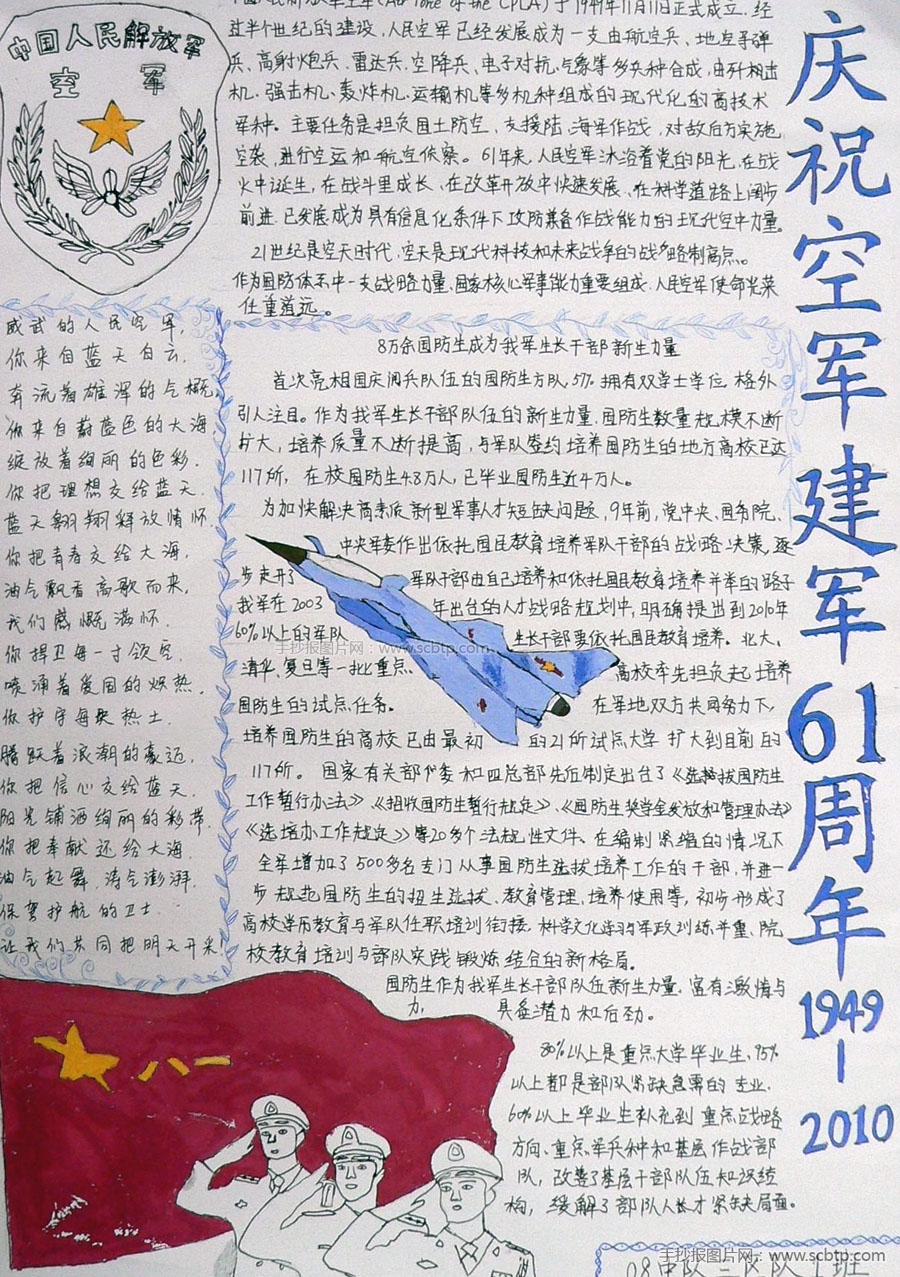 中国人民解放军
空 军
于1949年11月11日正式成立.经
过半个世纪的建设,人民空军已经发展成为一支由航空兵、地空导弹
兵、高射炮兵、雷达兵、空降兵、电子对抗、气象等多兵种合成,由歼击
机、强击机、轰炸机、运输机等多机种组成的现代化的高技术
军种。主要任务是担负国土防空、支援陆、海军作战,对敌后方实施
空袭,进行空运和航空侦察。61年来,人民空军沐浴着党的阳光,在战
火中诞生,在战斗里成长、在改革开放中快速发展、在科学道路上阔步
前进.已发展成为具有信息化条件下攻防兼备作战能力的现代空中力量。
21世纪是空天时代,空天是现代科技和未来战争的战略制高点。
作为国防体系中一支战略力量、国家核心军事能力重要组成,人民空军使命光荣
任重道远。
庆祝空军建军61周年1949-2010
威武的人民空军,
你来自蓝天白云.
奔流着雄浑的气概,
你来自蔚蓝色的大海
绽放着绚丽的色彩.
你把理想交给蓝天.
蓝天翱翔释放情怀.
你把青春交给大海,
油气飘香高歌而来,
我们感慨满怀.
你捍卫每一寸领空.
喷涌着爱国的炽热.
你护守每块热土.
腾跃着浪潮的豪迈,
你把信心交给蓝天.
阳光铺洒绚丽的彩带.
你把奉献还给大海.
油气起舞.涛气澎湃.
保驾护航的卫士.
让我们共同把明天开采!
8万余国防生成为我军生长干部新生力量
首次亮相国庆阅兵队伍的国防生方队,57%拥有双学士学位,格外
引人注目。作为我军生长干部队伍的新生力量,国防生数量规模不断
扩大,培养质量不断提高,与军队签约培养国防生的地方高校已达
117所,在校国防生4.8万人,已毕业国防生近4万人。
为加快解决高素质新型军事人才短缺问题,9年前,党中央、国务院、
中央军委作出依托国民教育培养军队干部的战略决策,逐
步走开了 军队干部由自己培养和依托国民教育培养并举的路子
我军在2003 年出台的人才战略规划中,明确提出到2010年
60%以上的军队 生长干部要依托国民教育培养。北大、
清华、复旦等一批重点 高校率先担负起培养
国防生的试点任务。 在军地双方共同努力下,
培养国防生的高校已由最初 的21所试点大学扩大到目前的
117所。国家有关部委和四总部先后制定出台了《选拔国防生
工作暂行办法》、《招收国防生暂行规定》、《国防生奖学金发放和管理办法》
《选培办工作规定》等20多个法规性文件、在编制紧缩的情况下
全军增加了500多名专门从事国防生选拔培养工作的干部,并进一
步规范国防生的招生选拔、教育管理、培养使用等,初步形成了
高校学历教育与军队任职培训衔接,科学文化学习与军政训练并重、院
校教育培训与部队实践锻炼结合的新格局。
国防生作为我军生长干部队伍新生力量.富有激情与
力, 具备潜力和后劲。
80%以上是重点大学毕业生,95%
以上都是部队紧缺急需的专业.
60%以上毕业生补充到重点战略
方向、重点军兵种和基层作战部
队,改善了基层干部队伍知识结
构,缓解了部队人才紧缺局面。
八一
手抄报图片网:www.scbtp.com
手抄报图片网:www.scbtp.com